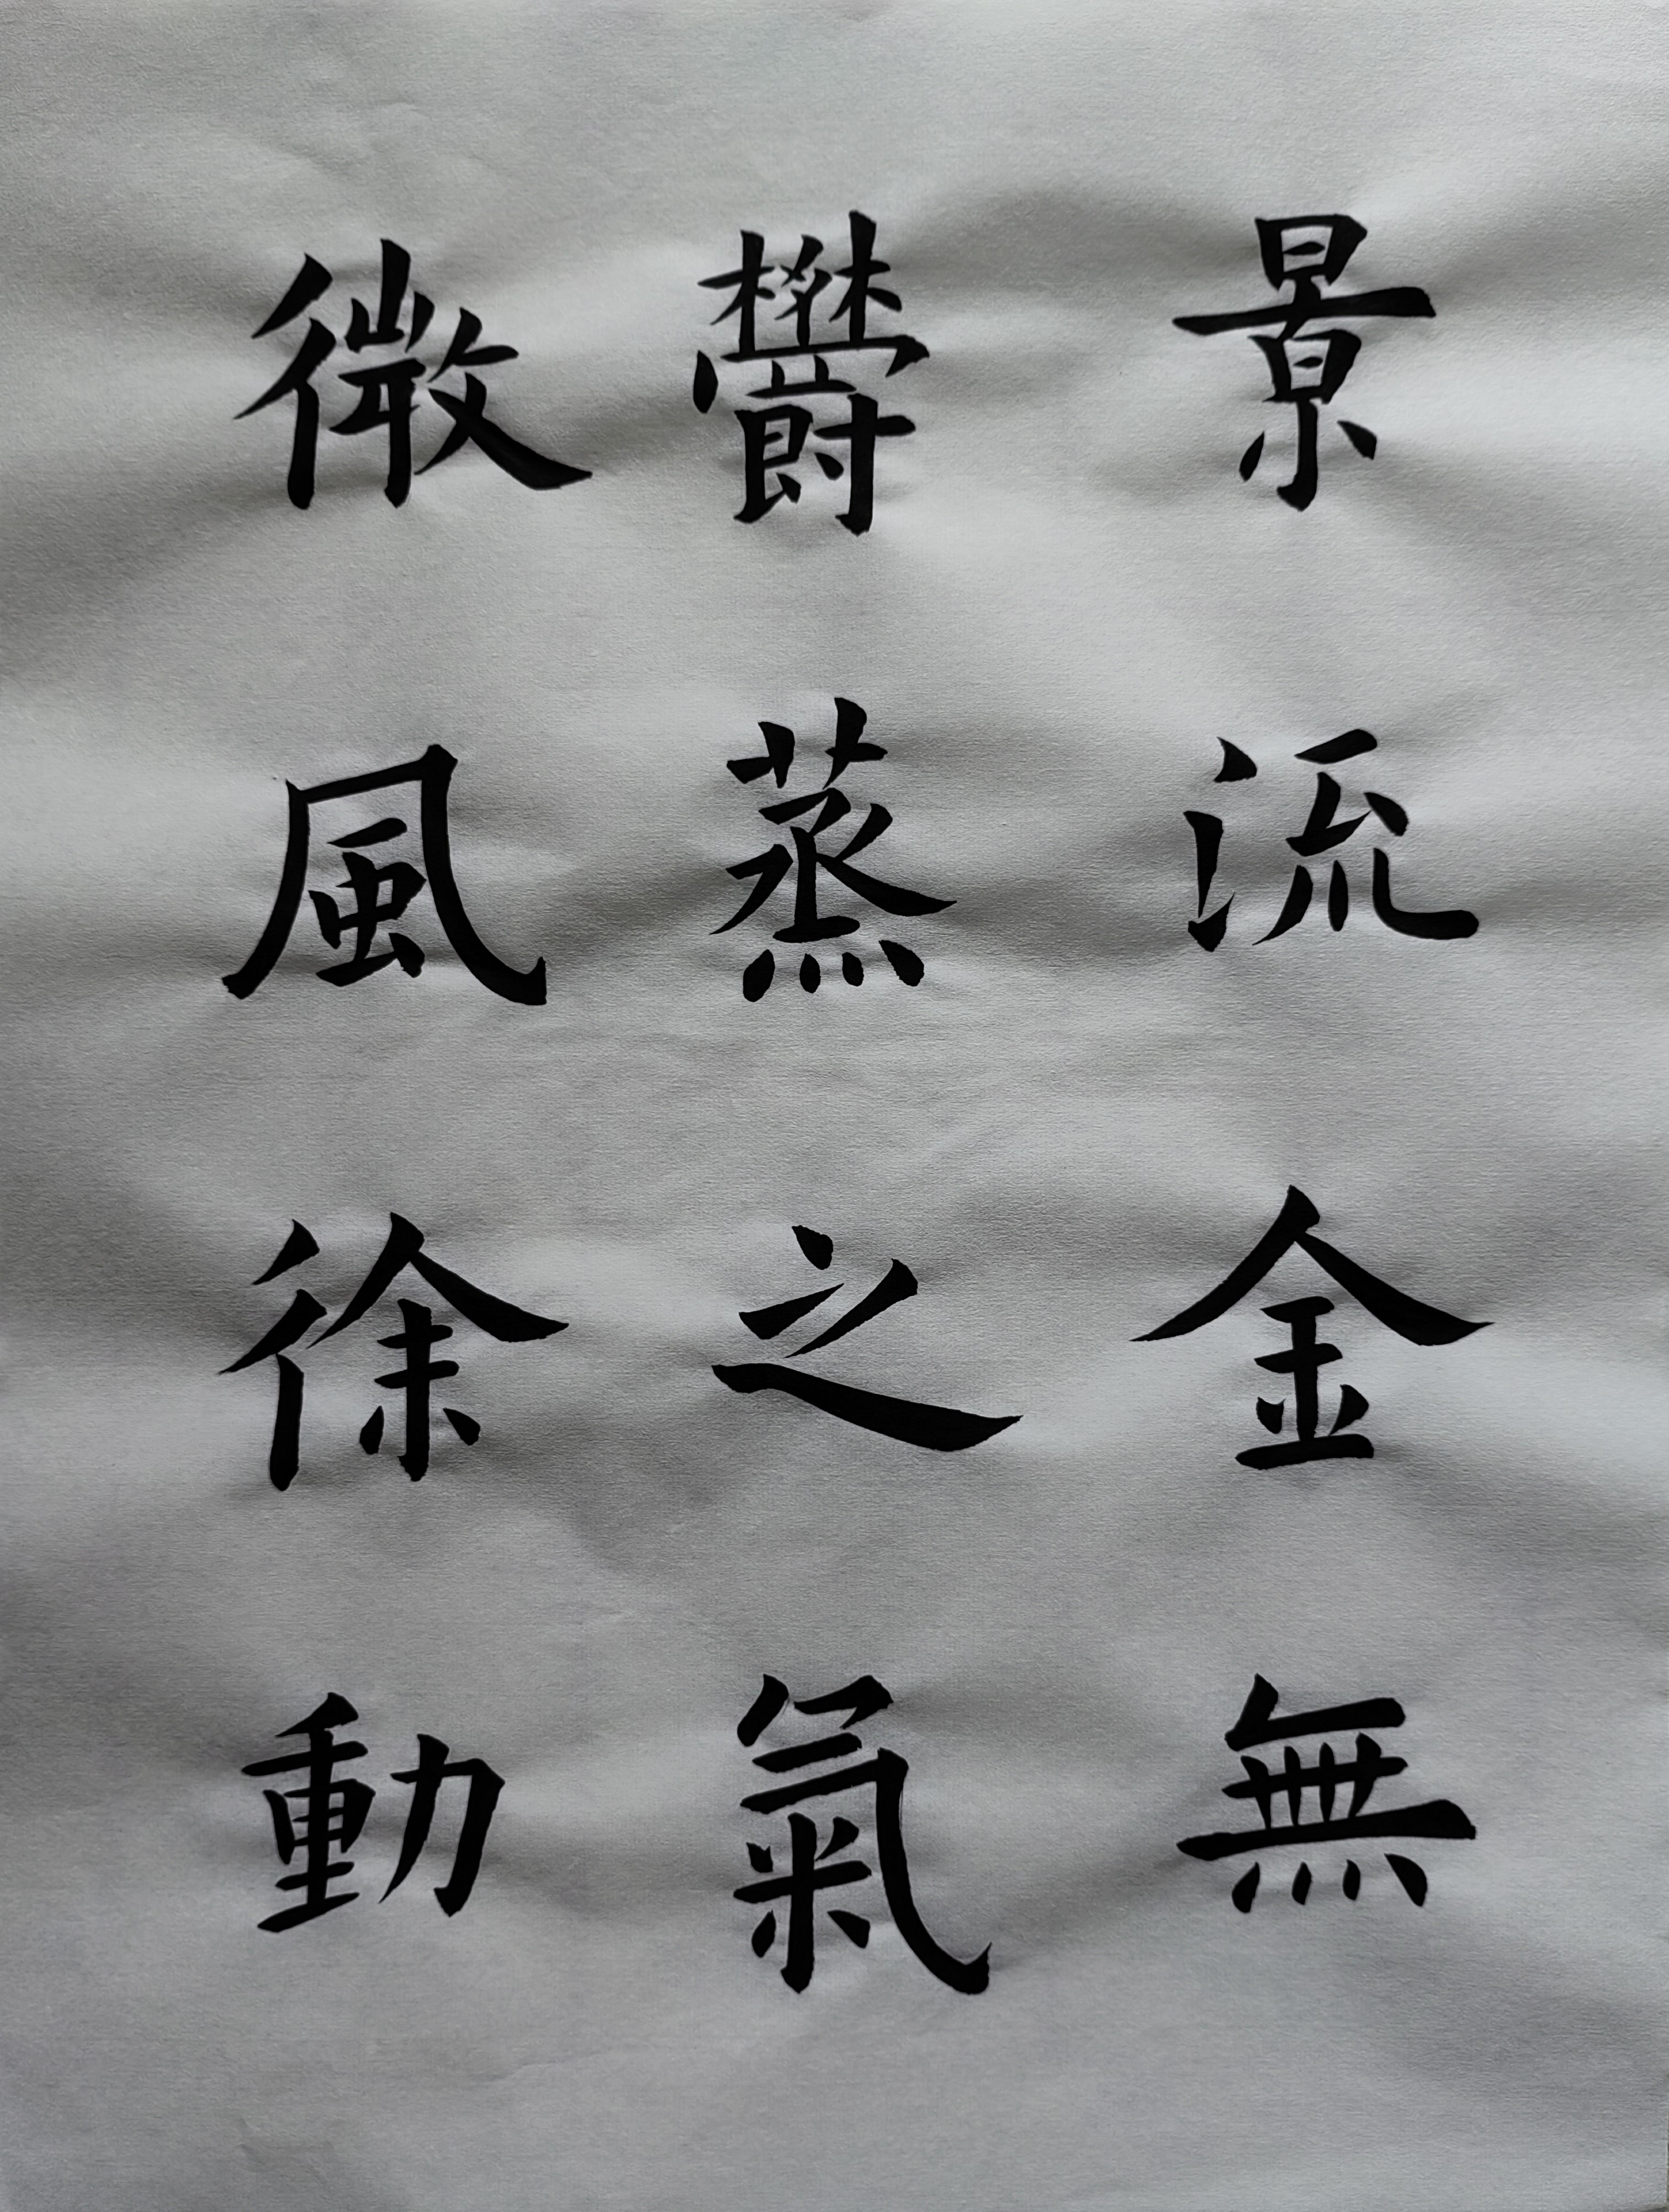 景流金無
欝蒸之氣
微風徐動